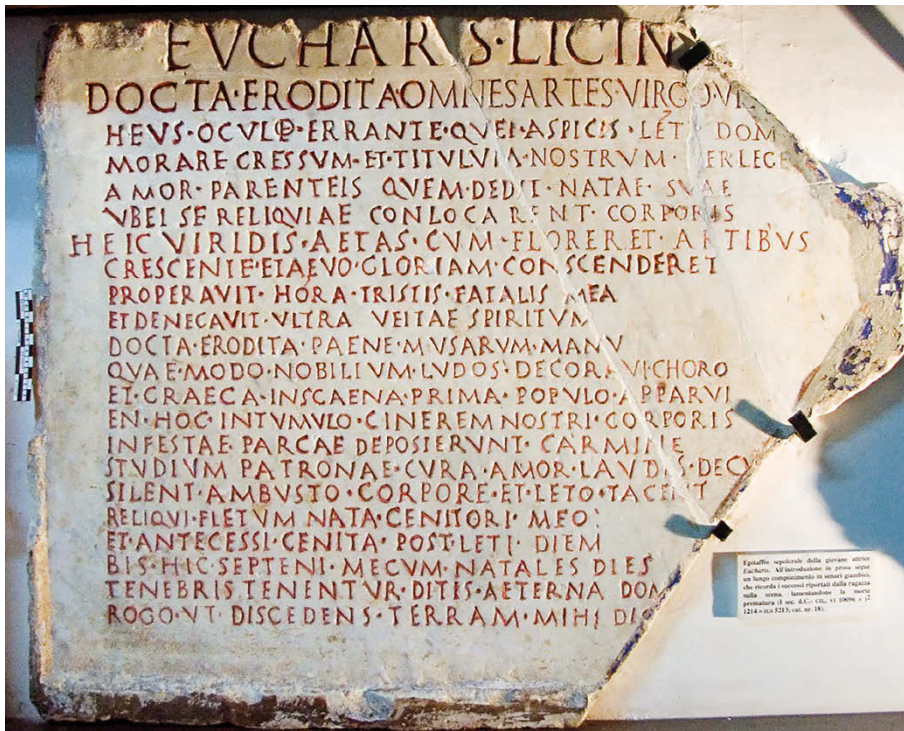 EVCHARIS·LICIN
DOCTA·ERODITA·OMNES ARTES·VIRGO·VI
HEVS·OCVLO·ERRANTE·QVEI·ASPICIS·LETI DOM
MORARE GRESSVM·ET·TITVLVM·NOSTRVM·PERLEGE
AMOR·PARENTEIS QVEM·DEDIT·NATAE·SVAE
VBEI SE RELIQVIAE CONLOCARENT·CORPORIS
HEIC VIRIDIS·AETAS·CVM·FLORERET·ARTIBVS
CRESCENTE·ET AEVO·GLORIAM·CONSCENDERET
PROPERAVIT·HORA·TRISTIS·FATALIS MEA
ET DENEGAVIT·VLTRA VEITAE SPIRITVM
DOCTA·ERODITA·PAENE·MVSARVM·MANV
QVAE·MODO·NOBILIVM·LVDOS·DECORAVI·CHORO
ET·GRAECA·IN SCAENA·PRIMA·POPVLO·APPARVI
EN·HOC·IN TVMVLO·CINEREM NOSTRI·CORPORIS
INFESTAE·PARCAE DEPOSIERVNT·CARMINE
STVDIVM PATRONAE·CVRA·AMOR·LAVDES·DECV
SILENT·AMBVSTO·CORPORE·ET·LETO·TACENT
RELIQVI·FLETVM NATA·GENITORI·MEO
ET·ANTECESSI·GENITA·POST·LETI·DIEM
BIS·HIC·SEPTENI·MECVM·NATALES DIES
TENEBRIS TENENTVR·DITIS·AETERNA DOM
ROGO·VT·DISCEDENS·TERRAM·MIHI DIC
Epitaffio sepolcrale della giovane attrice
Eucharis. All'introduzione in prosa segue
un lungo componimento in senari giambici,
che ricorda i successi riportati dalla ragazza
sulla scena, lamentandone la morte
prematura (I sec. d.C.- CIL, VI 10096 = I²
1214 = ILS 5213; cat. nr. 18).